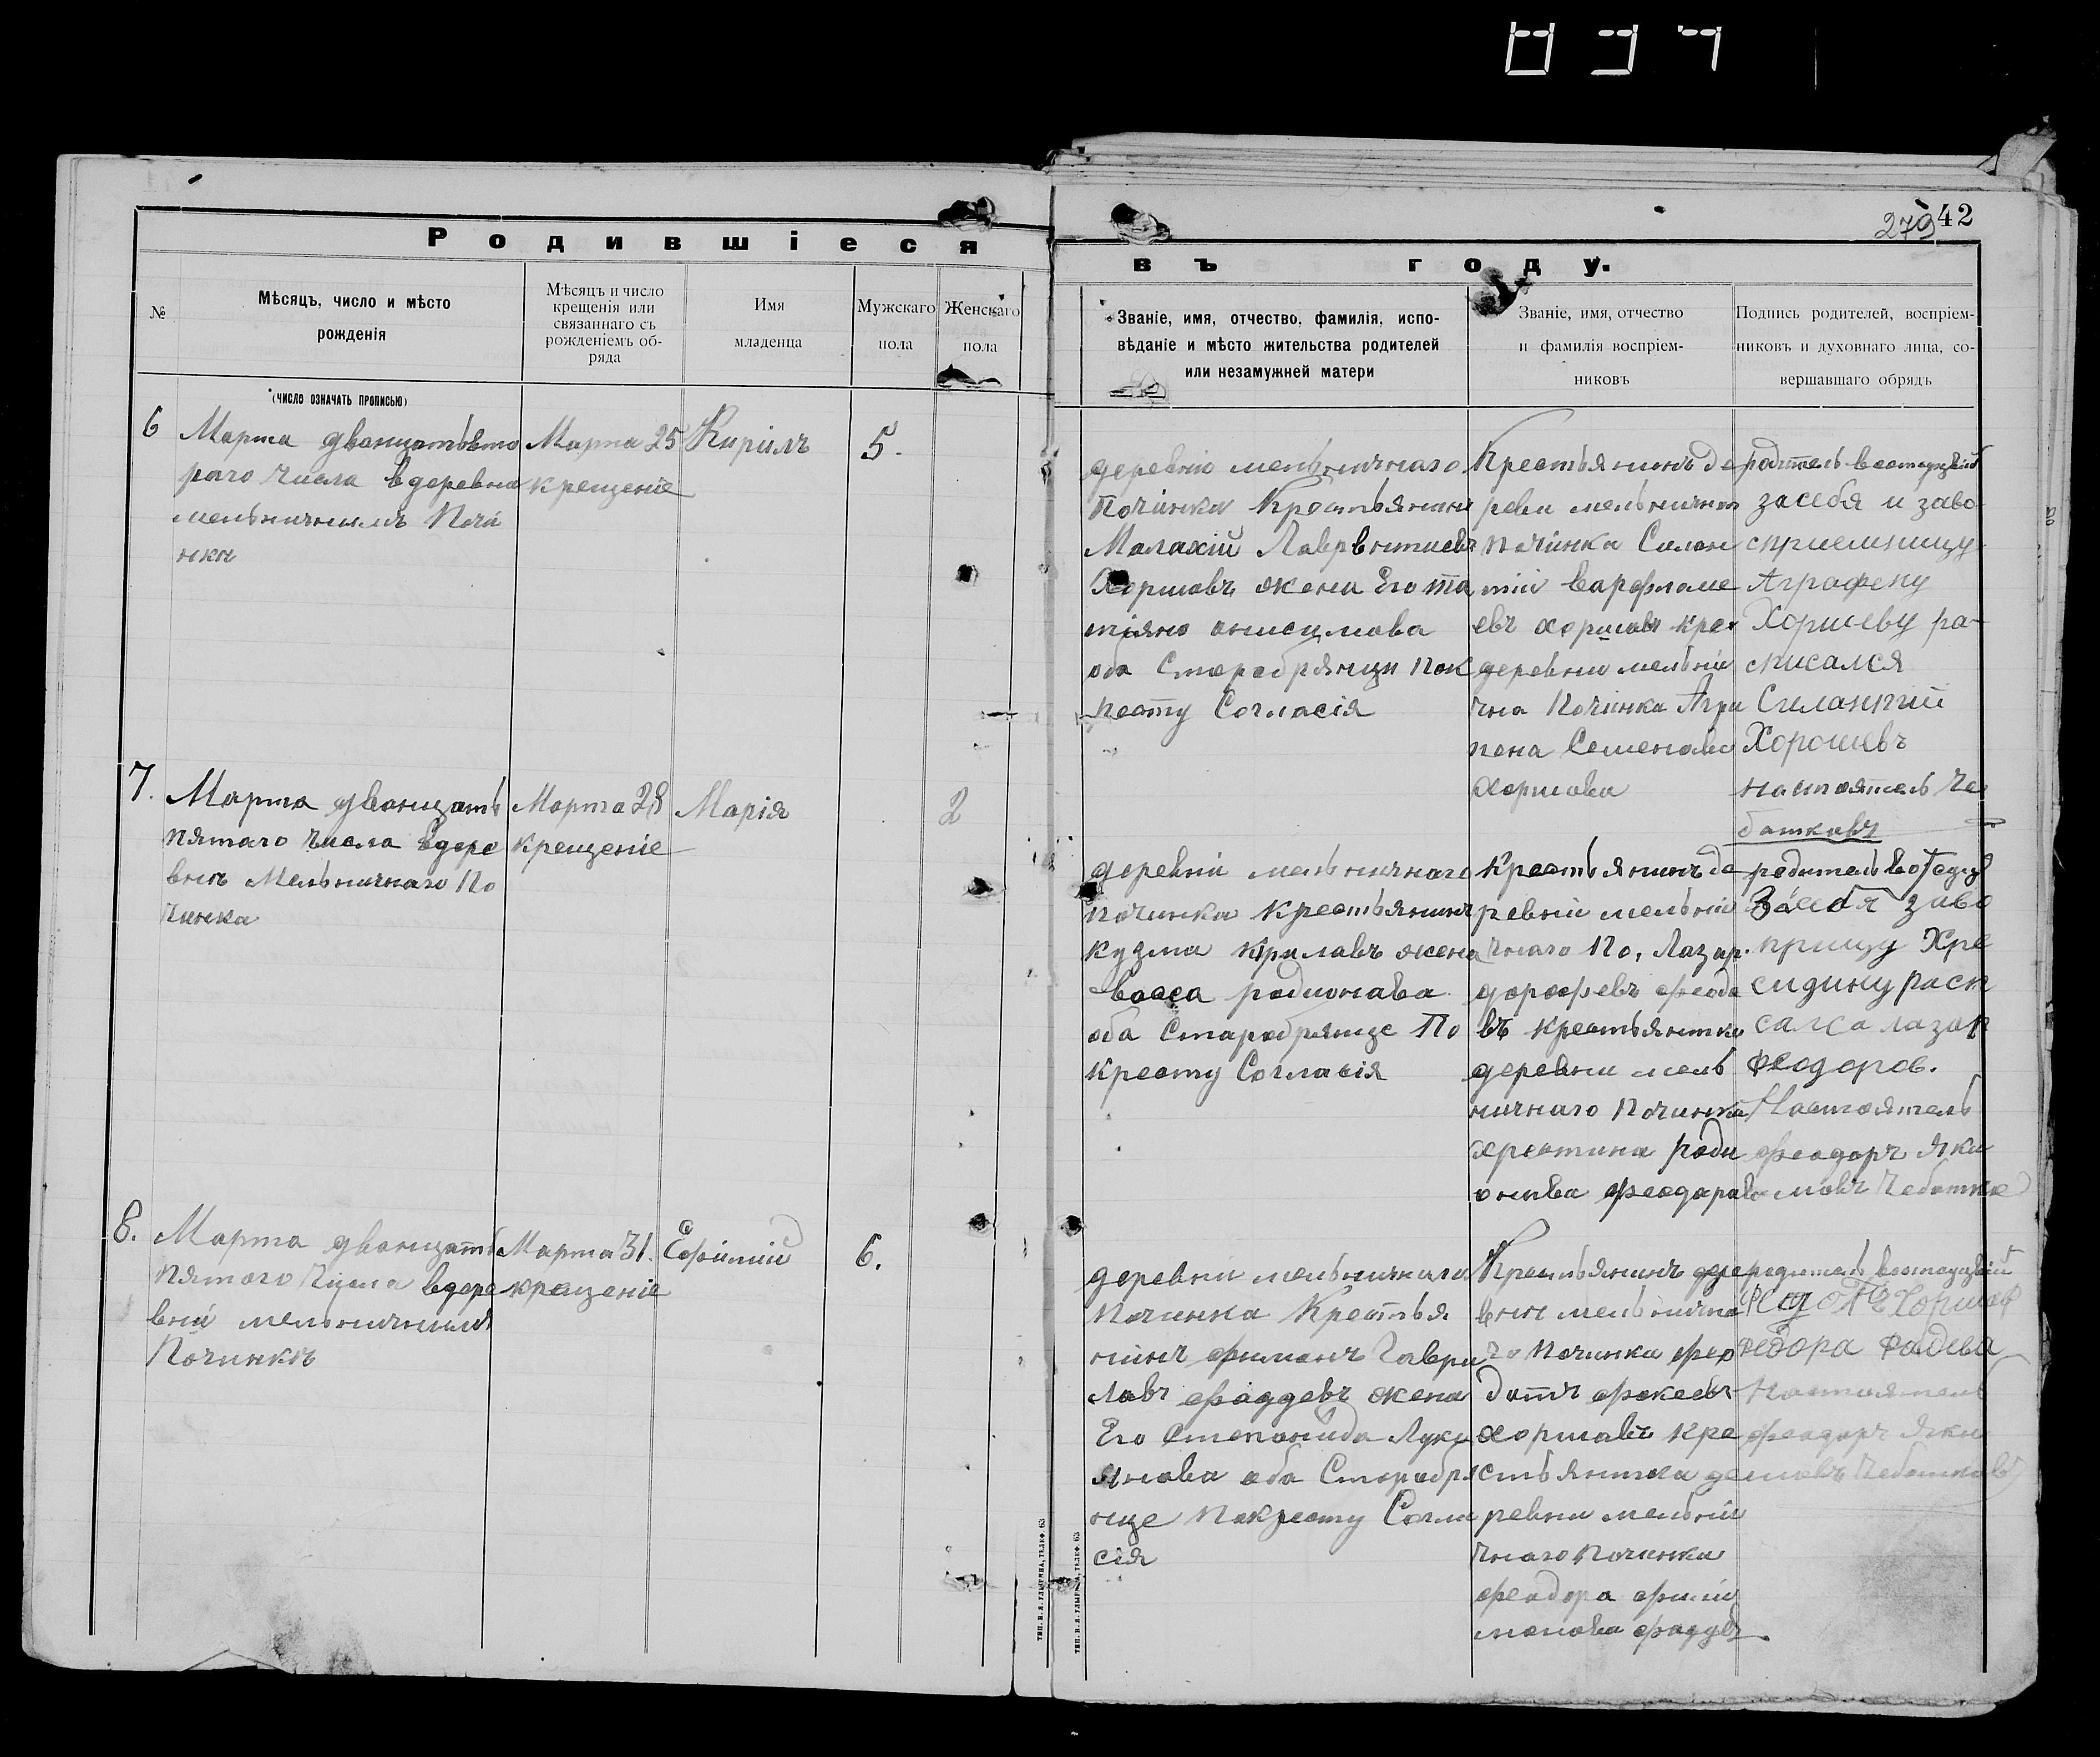 279 42
Родившіеся
въ году.
№
Мѣсяцъ, число и мѣсто
рожденія
Мѣсяцъ и число
крещенія или
связаннаго съ
рожденіемъ об-
ряда
Имя
младенца
Мужскаго
пола
Женскаго
пола
Званіе, имя, отчество, фамилія, испо-
вѣданіе и мѣсто жительства родителей
или незамужней матери
Званіе, имя, отчество
и фамилія воспріем-
никовъ
Подпись родителей, воспріем-
никовъ и духовнаго лица, со-
вершавшаго обрядъ
(число означать прописью)
6
Марта дванцатьвто
раго числа вдеревни
мельничнимъ Почи
нки
Марта 25
крещеніе
Кирілъ
5.
деревнію мельничнаго
Почінка Крестьянин
Малахій Лаврвнтиевъ
Хоршавъ жена Его та
тіяно онисимова
оба Старобрянцы Пок
кресту Согласія
Крестьянинъ де
ревн мельнични
Почінка Силан
тій Варфламе
евъ хоршавъ кре
деревни мельни
чна Почінка Агри
пена Семенова
Хоршова
родітель
засебя и заво
сприемницу
Аграфену
Хоршеву ра-
списался
Силантий
Хорошевъ
настоятель Че
батковъ
7.
Марта дванцать
пятаго числа вдере
внъ Мельничнаго По
чинка
Марта 28
крещеніе
Марія
2
деревній мельничнаго
Починка крестьянинъ
кузма Крилавъ жена
васса родионава
оба Старобрянце По
кресту Согласія
крестьянинъ де
ревній мельніи
чнаго По, Лазар.
дорофевъ феода
въ крестьянтка
деревни мель
ничнаго Починка
христина роди
онива феодорав
родитель
Засебя заво
прицу Хре
сидину расп
салса лазар
Феодоров.
Настоятель
феодоръ Яки
мовъ Чебатков
8.
Марта дванцать
пятаго Числа вдере
вній мельничнимъ
Починкъ
Марта 31.
крещеніе
Ефімий
6.
деревни мельничнаго
Починка Крестья
нинъ филимонъ Гаври
лавъ фаддевъ жена
Его Степанида Луки
янова оба Старобря
нце Покресту Согла
сія
Крестьянинъ дере
вни мельнична
го Починка фео
датъ фокеевъ
хоршавъ кре
стьянтка де
ревни мельній
чнаго Починка
феодора фили
монова фаддев
родитель
Федотъ Хоршов
Федора Фадева
Настоятель
феодоръ Яки
мовъ Чебатковъ